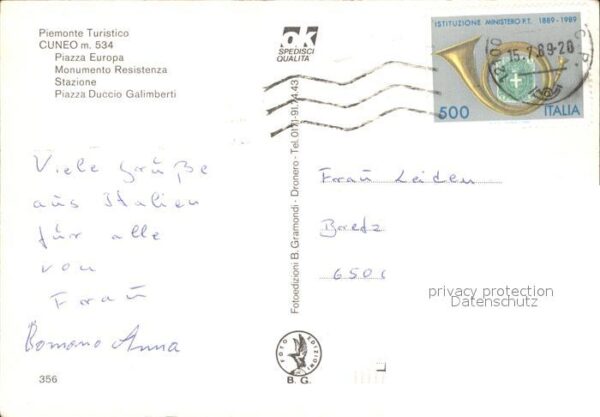 Piemonte Turistico
CUNEO m. 534
Piazza Europa
Monumento Resistenza
Stazione
Piazza Duccio Galimberti
ok
SPEDISCI
QUALITÀ
ISTITUZIONE MINISTERO P.T. 1889-1989
15.7.89-20
500 ITALIA
Viele Grüße
aus Italien
für alle
von
Frau
Romano Anna
Fotoedizioni B. Gramondi - Dronero - Tel. 0171-91.74.43
Frau Leiden
6501
privacy protection
Datenschutz
FOTO EDIZIONI
B. G.
356